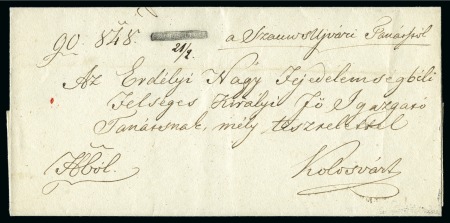 90. 848. 21/2 a Szamosujvári Tanácstól
Az Erdélyi Nagy Fejedelemségbéli
Felséges Királyi Fö Igazgató
Tanátsnak, mély tisztelettel
Kolosvárt